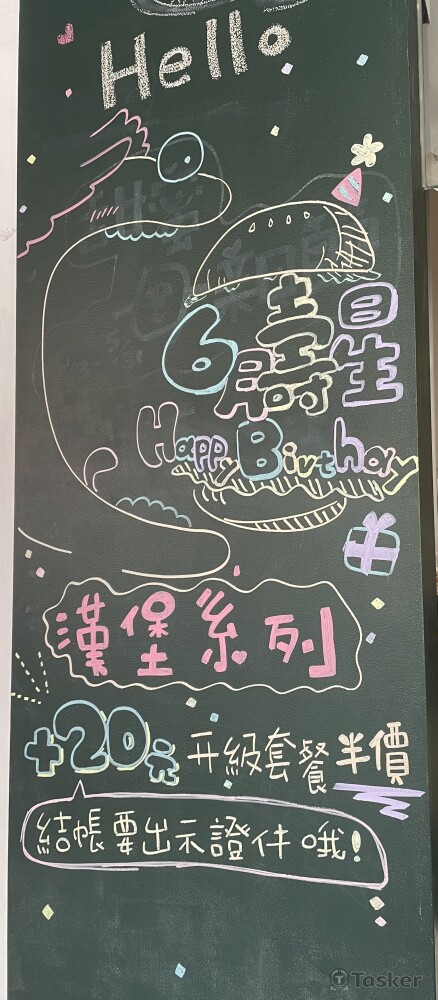 Hello
6月壽星
Happy Birthday
漢堡系列
+20元升級套餐半價
結帳要出示證件哦!
Tasker